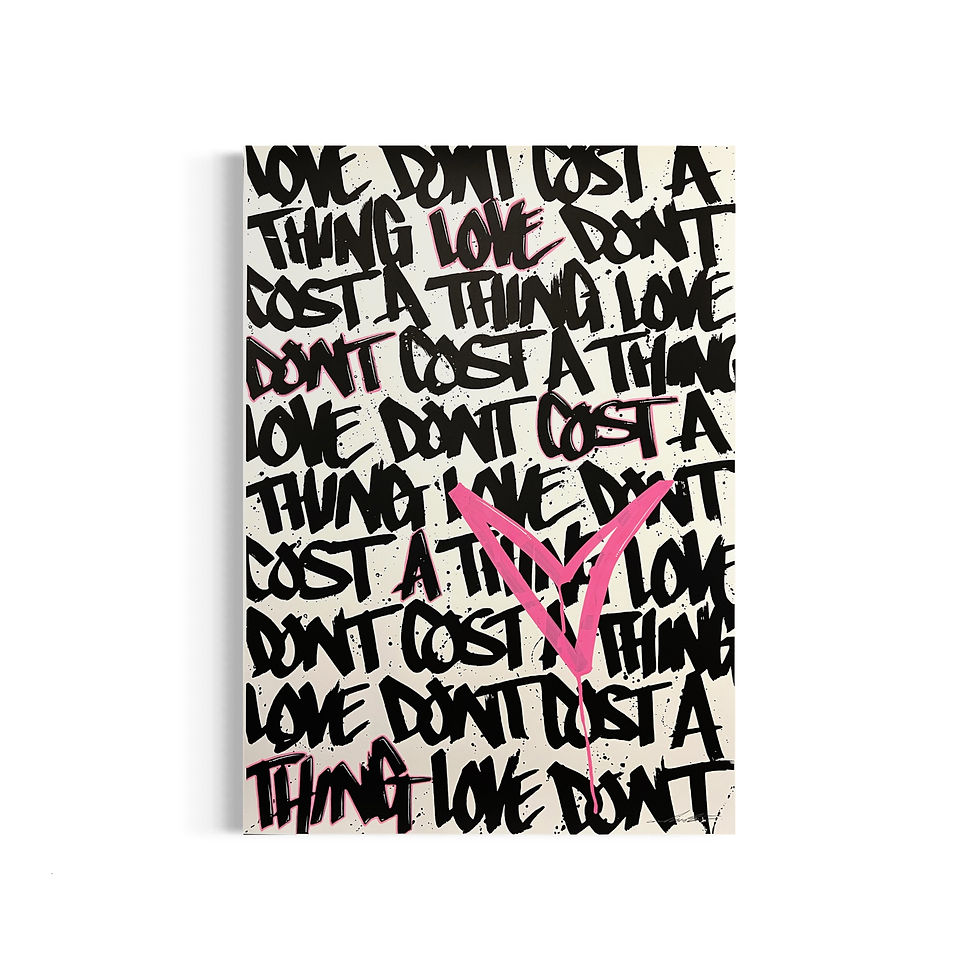 LOVE DONT COST A
THING LOVE DONT
COST A THING LOVE
DONT COST A THING
LOVE DONT COST A
THING LOVE DONT
COST A THING LOVE
DONT COST A THING
LOVE DONT COST A
THING LOVE DONT